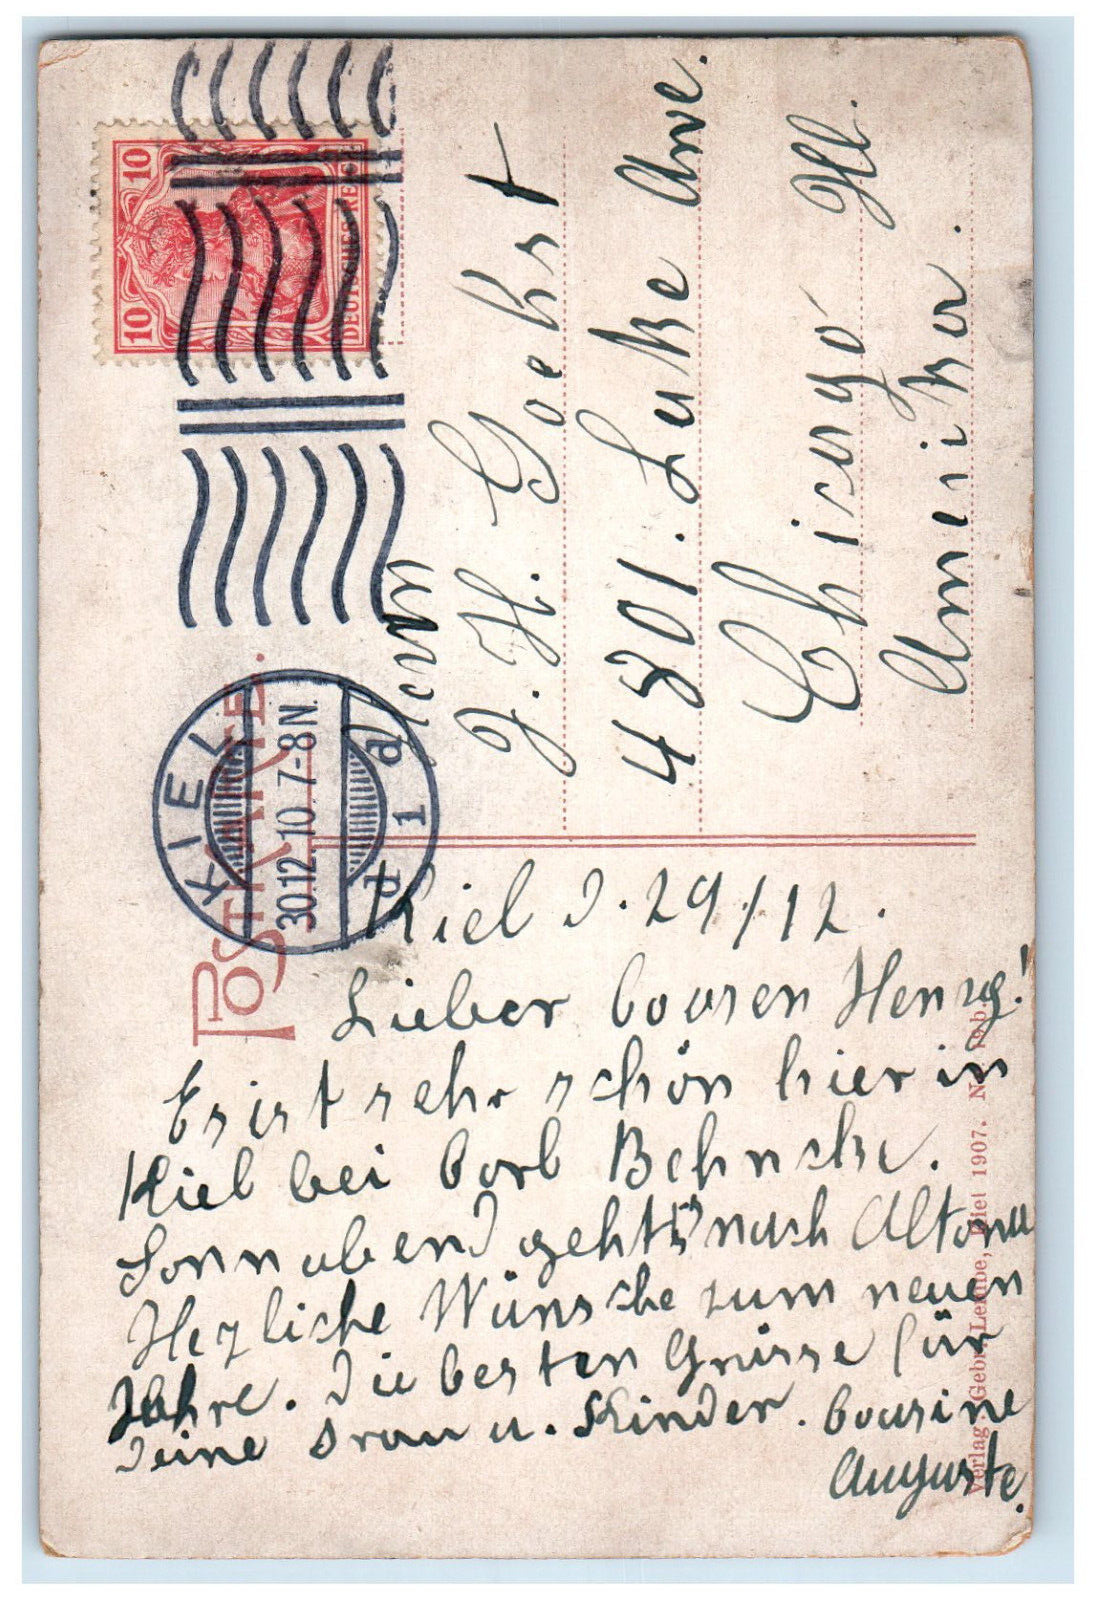 10 10
DEUTSCHES REICH
KIEL
30.12.10. 7-8 N.
d 1 a
POSTKARTE.
Herrn
J. H. Goehst
4301. Lake Awe.
Chicago Ill.
Amerika.
Kiel d. 29/12.
Lieber Cousen Henry!
Es ist sehr schön hier in
Kiel bei Carl Behnche.
Sonnabend gehts nach Altona
Hezliche Wünsche zum neuen
Jahre. Die besten Grüsse für
Deine Frau u. Kinder. Cousine
Auguste.
Verlag: Gebr. Lempe, Kiel 1907. No.